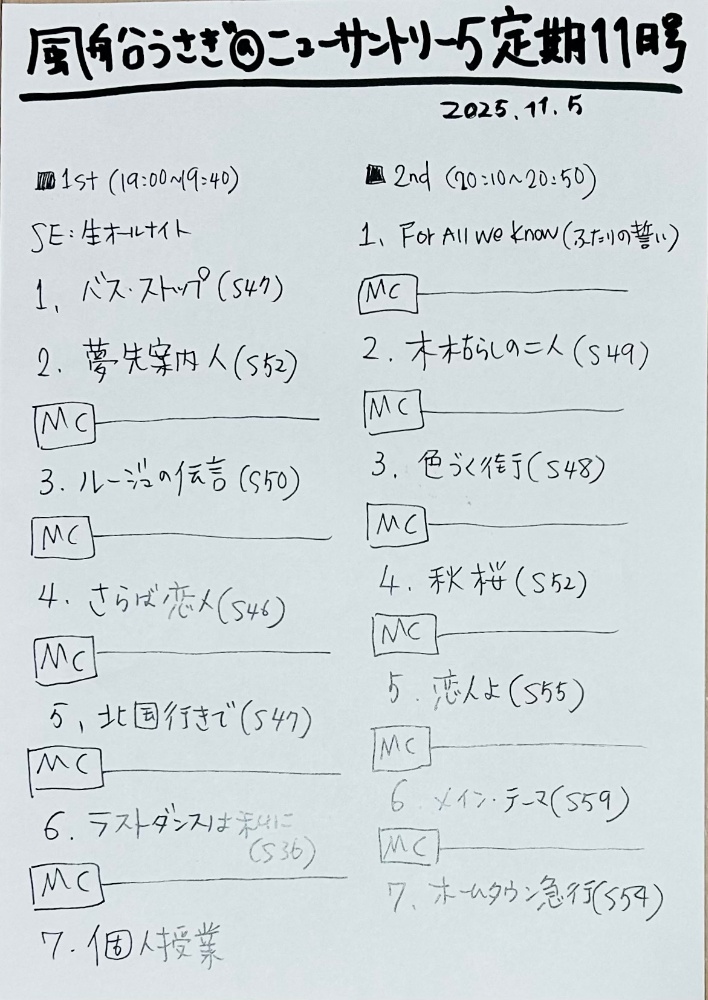 風船うさぎ@ニューサントリー5定期11月号
2025.11.5
■1st (19:00~19:40)
SE:生オールナイト
1. バス・ストップ(S47)
2. 夢先案内人(S52)
MC
3. ルージュの伝言(S50)
MC
4. さらば恋人(S46)
MC
5. 北国行きで(S47)
MC
6. ラストダンスは私に
(S36)
MC
7. 個人授業
■2nd (20:10~20:50)
1. For All We Know(ふたりの誓い)
MC
2. 木枯らしの二人(S49)
MC
3. 色づく街(S48)
MC
4. 秋桜(S52)
MC
5. 恋人よ(S55)
MC
6. メイン・テーマ(S59)
MC
7. ホームタウン急行(S54)